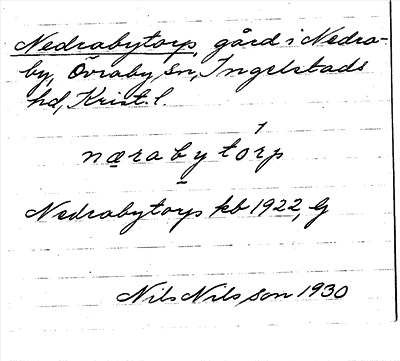 Nedrabytorp, gård i Nedra-
by, Övraby sn, Ingelstads
hd, Krist. l.
nærabytorp
Nedrabytorp kb 1922, G
Nils Nilsson 1930